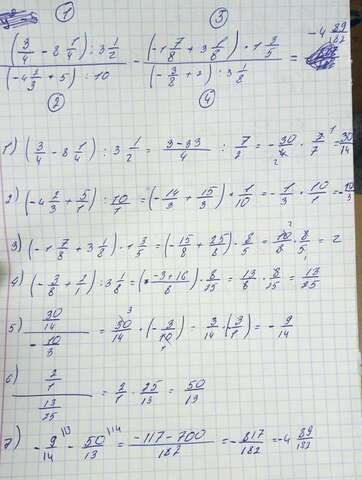 ① ③
(3/4 - 8 1/4) : 3 1/2 / (-4 2/3 + 5) : 10 - (-1 7/8 + 3 1/8) · 1 3/5 / (-3/8 + 2) : 3 1/8 = -4 89/182
② ④
1) (3/4 - 8 1/4) : 3 1/2 = 3-33/4 : 7/2 = -30/4 · 2/7 = 30/14
2) (-4 2/3 + 5/1) : 10/1 = (-14/3 + 15/3) · 1/10 = -1/3 · 10/1 = -10/3
3) (-1 7/8 + 3 1/8) · 1 3/5 = (-15/8 + 25/8) · 8/5 = 10/8 · 8/5 = 2
4) (-3/8 + 2/1) : 3 1/8 = (-3+16/8) · 8/25 = 13/8 · 8/25 = 13/25
5) 30/14 / -10/3 = 30/14 · (-3/10) = 3/14 · (3/1) = -9/14
6) 2/1 / 13/25 = 2/1 · 25/13 = 50/13
7) -9/14 - 50/13 = -117-700/182 = -817/182 = -4 89/182